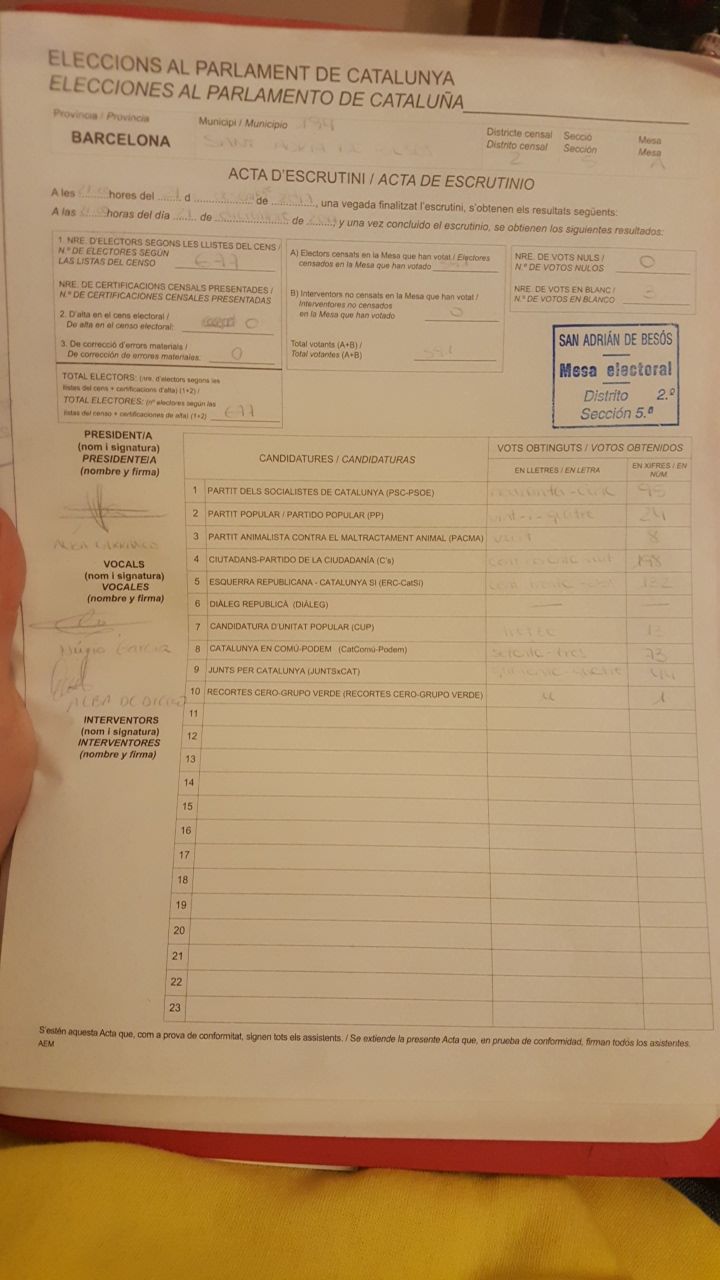 ELECCIONS AL PARLAMENT DE CATALUNYA
ELECCIONES AL PARLAMENTO DE CATALUÑA
Provincia / Provincia
BARCELONA
Municipi / Municipio
Districte censal
Distrito censal
2
Secció
Sección
Mesa
Mesa
A
ACTA D'ESCRUTINI / ACTA DE ESCRUTINIO
A les hores del d de , una vegada finalitzat l'escrutini, s'obtenen els resultats següents:
A las horas del día de de , y una vez concluido el escrutinio, se obtienen los siguientes resultados:
1. NRE. D'ELECTORS SEGONS LES LLISTES DEL CENS /
N.º DE ELECTORES SEGÚN
LAS LISTAS DEL CENSO 677
NRE. DE CERTIFICACIONS CENSALS PRESENTADES /
N.º DE CERTIFICACIONES CENSALES PRESENTADAS
2. D'alta en el cens electoral /
De alta en el censo electoral: 0
3. De correcció d'errors materials /
De corrección de errores materiales: 0
TOTAL ELECTORS: (nre. d'electors segons les
llistes del cens + certificacions d'alta) (1+2) /
TOTAL ELECTORES: (nº electores según las
listas del censo + certificaciones de alta) (1+2) 677
A) Electors censats en la Mesa que han votat / Electores
censados en la Mesa que han votado
B) Interventors no censats en la Mesa que han votat /
Interventores no censados
en la Mesa que han votado 0
Total votants (A+B) /
Total votantes (A+B)
NRE. DE VOTS NULS /
N.º DE VOTOS NULOS 0
NRE. DE VOTS EN BLANC /
N.º DE VOTOS EN BLANCO 3
SAN ADRIÁN DE BESÓS
Mesa electoral
Distrito 2.º
Sección 5.ª
PRESIDENT/A
(nom i signatura)
PRESIDENTE/A
(nombre y firma)
VOCALS
(nom i signatura)
VOCALES
(nombre y firma)
INTERVENTORS
(nom i signatura)
INTERVENTORES
(nombre y firma)
CANDIDATURES / CANDIDATURAS
VOTS OBTINGUTS / VOTOS OBTENIDOS
EN LLETRES / EN LETRA
EN XIFRES / EN NÚM.
1 PARTIT DELS SOCIALISTES DE CATALUNYA (PSC-PSOE) 95
2 PARTIT POPULAR / PARTIDO POPULAR (PP) vint-i-quatre 24
3 PARTIT ANIMALISTA CONTRA EL MALTRACTAMENT ANIMAL (PACMA) vuit 8
4 CIUTADANS-PARTIDO DE LA CIUDADANÍA (C's) 198
5 ESQUERRA REPUBLICANA - CATALUNYA SI (ERC-CatSí) 132
6 DIÀLEG REPUBLICÀ (DIÀLEG) —— —
7 CANDIDATURA D'UNITAT POPULAR (CUP) tretze 13
8 CATALUNYA EN COMÚ-PODEM (CatComú-Podem) setanta-tres 73
9 JUNTS PER CATALUNYA (JUNTSxCAT) 44
10 RECORTES CERO-GRUPO VERDE (RECORTES CERO-GRUPO VERDE) u 1
11
12
13
14
15
16
17
18
19
20
21
22
23
S'estén aquesta Acta que, com a prova de conformitat, signen tots els assistents. / Se extiende la presente Acta que, en prueba de conformidad, firman todos los asistentes.
AEM